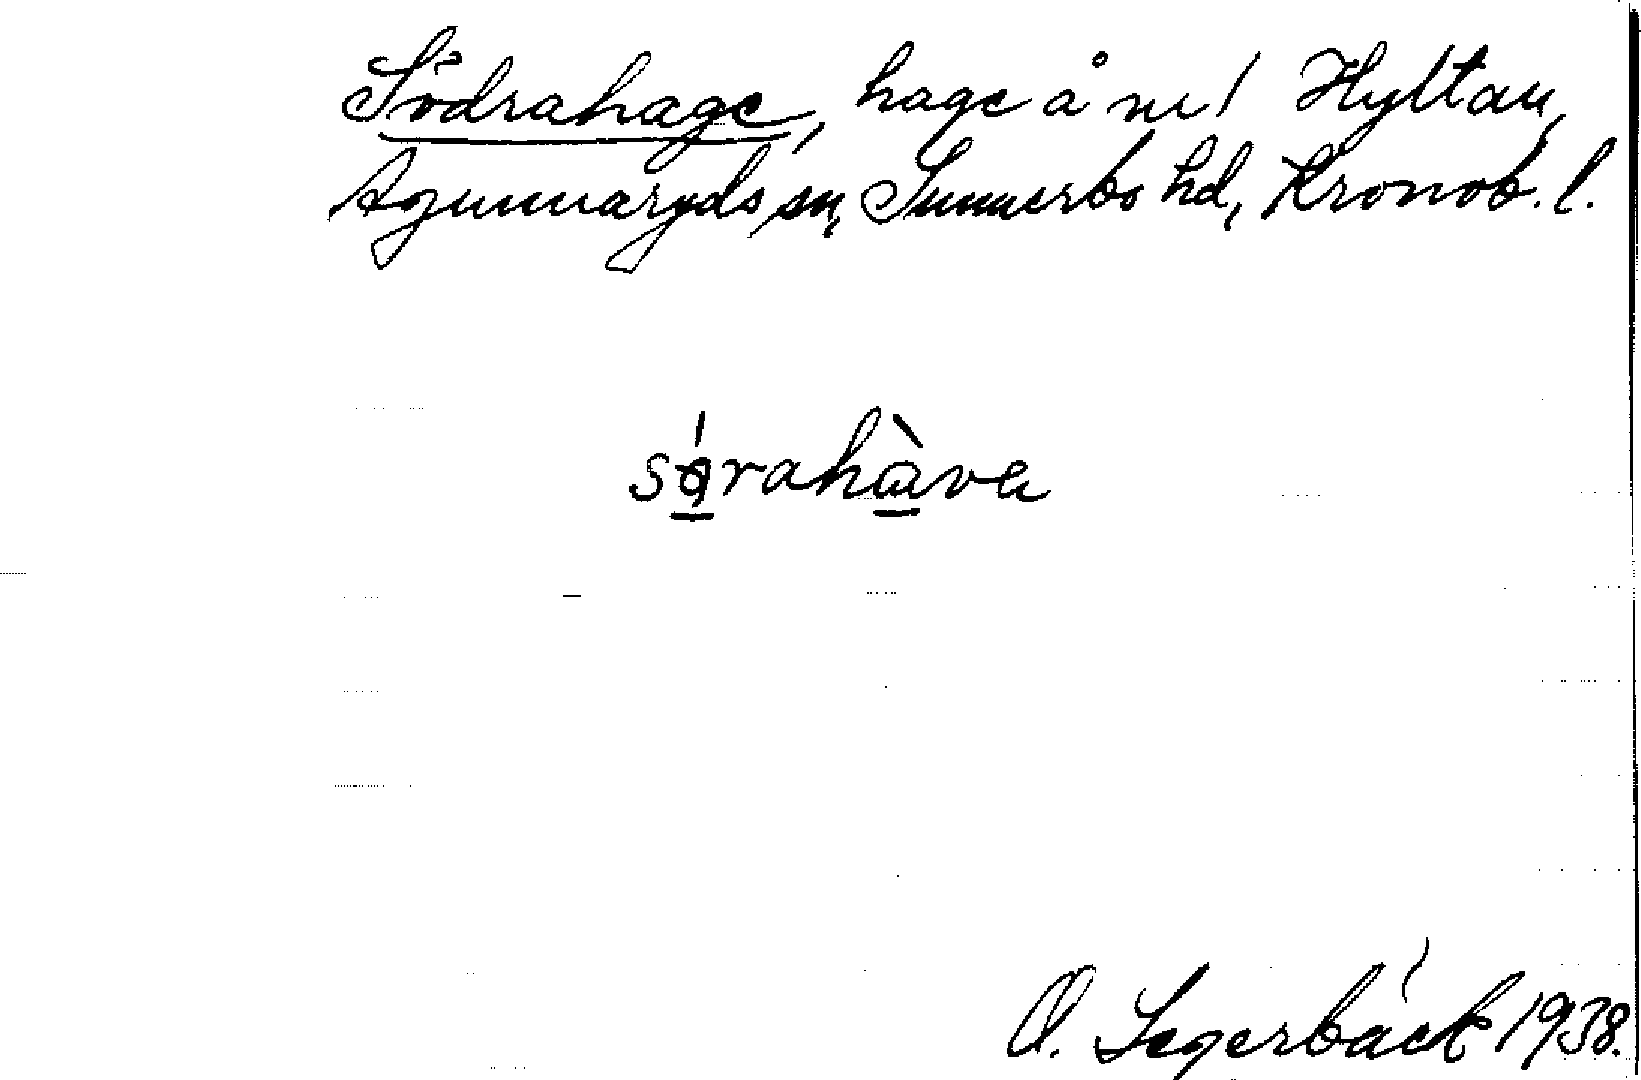 Södrahage, hage å nr 1 Hyltan,
Agunnaryds sn, Sunnerbo hd, Kronob. l.
sǿrahàva
O. Segerbäck 1938.